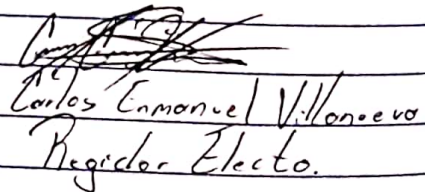 Carlos Enmanuel Villanueva
Regidor Electo.